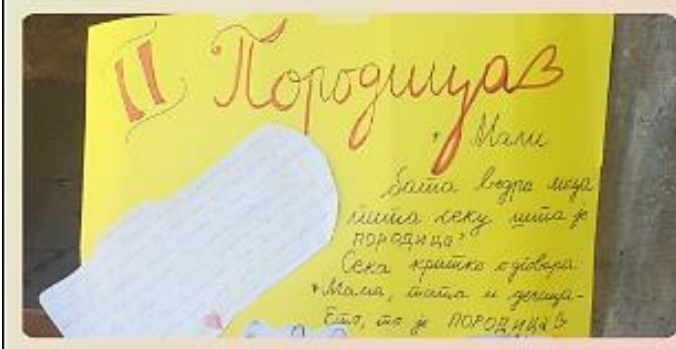 II Породица
Мали
бата ведра лица
пита секу шта је
ПОРОДИЦА?
Сека кратко одговара
Мама, тата и дечица-
Ето, то је ПОРОДИЦА